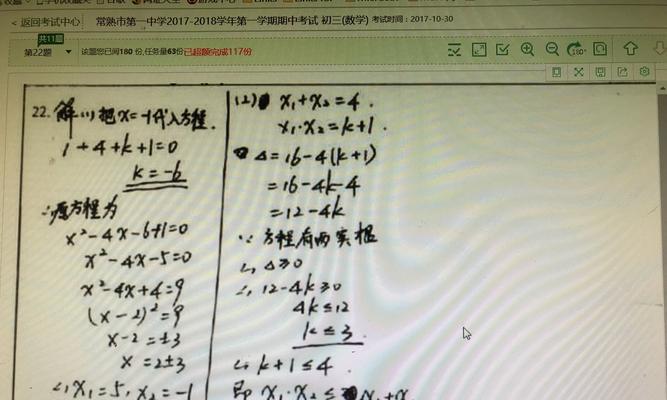 返回考试中心 常熟市第一中学2017-2018学年第一学期期中考试 初三(数学) 考试时间：2017-10-30
共11题
第22题 该题您已阅180 份,任务量63份已超额完成117份
180°
22. 解(1) 把x=-1代入方程.
1+4+k+1=0
k=-6
∴原方程为
x²-4x-6+1=0
x²-4x-5=0
x²-4x+4=9
(x-2)²=9
x-2=±3
x=2±3
∴x₁=5, x₂=-1
(2) x₁+x₂=4.
x₁·x₂=k+1.
Δ=16-4(k+1)
=16-4k-4
=12-4k
∵方程有两实根
∴Δ≥0
∴12-4k≥0
4k≤12
k≤3.
∴k+1≤4.
即 x₁·x₂≤x₁+x